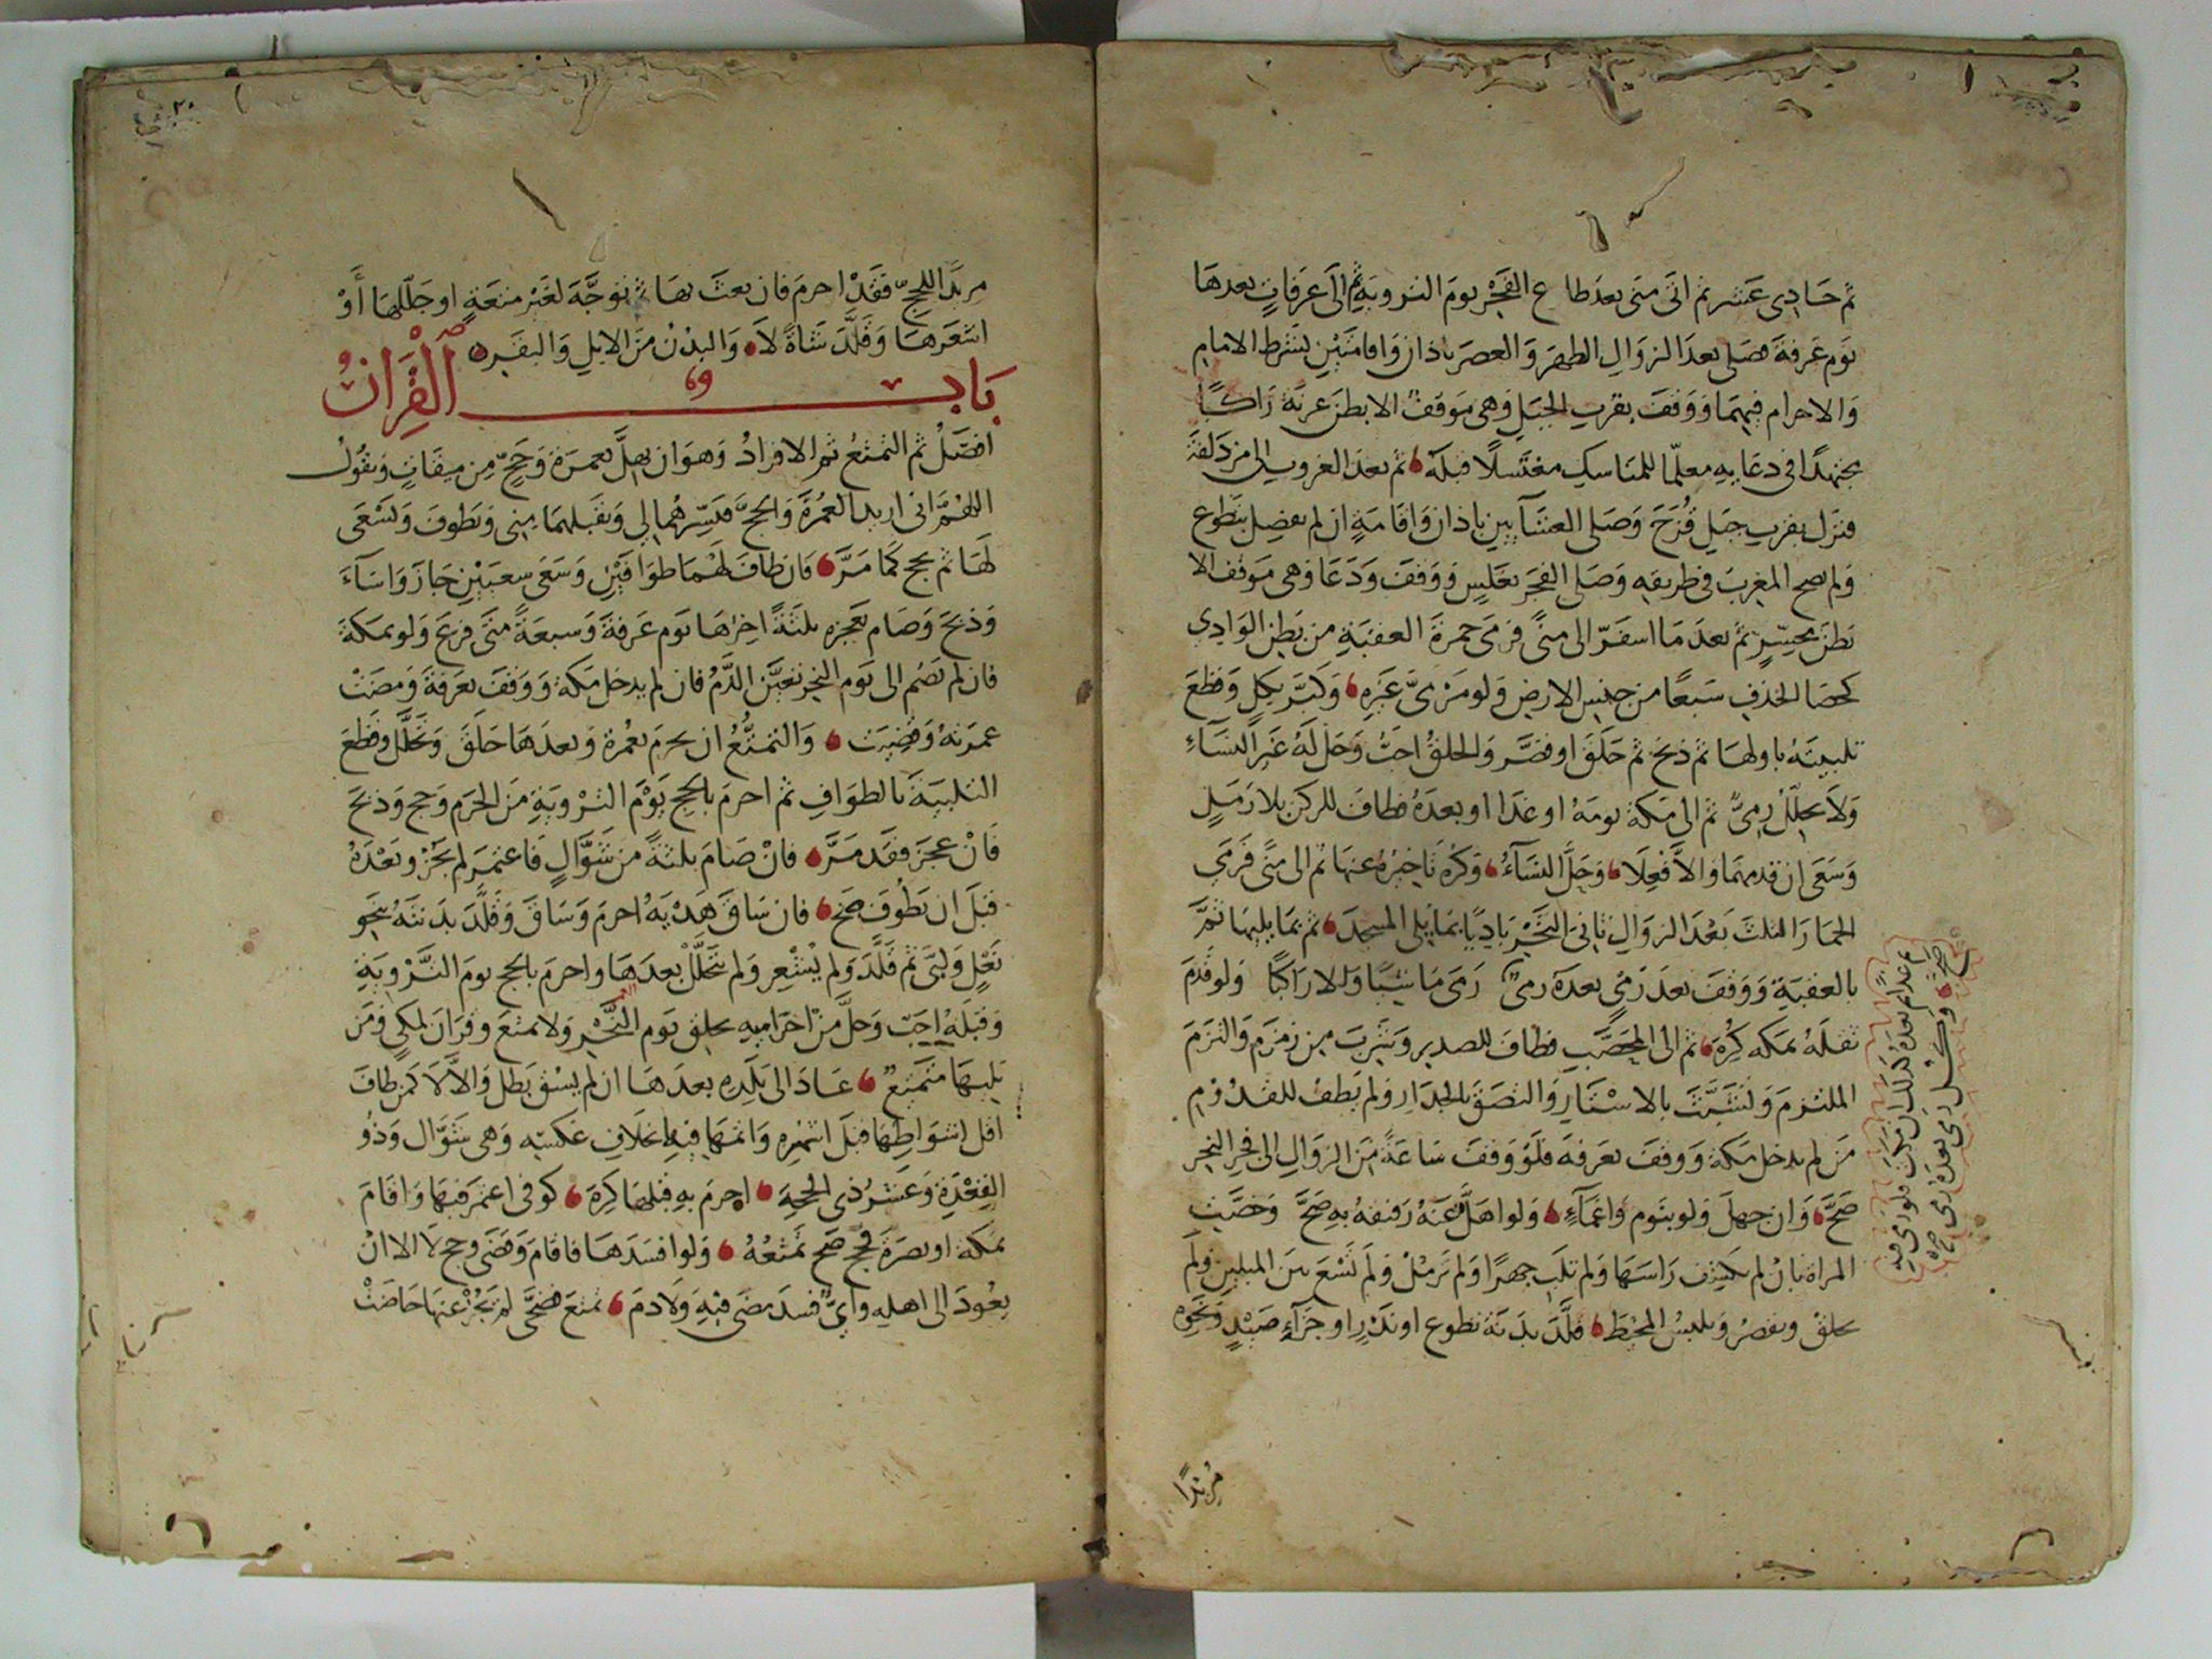 ثم حادى عشر ثم اتى منى بعد طلوع الفَجْر يومَ التروية ثم الى عَرَفاتٍ بعدها
يوم عرفة فصلى بعد الزوال الظهرَ وَالعصرَ باذان وَاقامتَيْن بشرط الامام
وَالاحرام فيهمَا وَوقفَ بقرب الجبَل وَهى مَوقفٌ الا بطنَ عرنَة رَاكبًا
مجتهدًا فى دعَايه معلّما للمنَاسك مغتَسلًا قبلَهُ ثم بعدَ الغروب الى مزدَلفَة
فنزل بقرب جبَل قُزَحَ وَصَلى العشَآيين باذان وَاقامَةٍ ان لم يفصل بتطوع
وَلم يصح المغربَ فى طريقه وَصَلى الفجَر بغلَسٍ وَوقفَ وَدَعَا وَهى مَوقف الا
بطنَ محسّرٍ ثم بعدَ مَا اسفَرَ الى منىً فرمَى جمرَةَ العقبَةِ من بَطن الوَادى
كحصَا الخذف سَبعًا من جنس الارض وَلو مَرمىَّ غَيْرِه وَكبَّرَ بكل وَقطعَ
تلبيتَهُ باولهَا ثم ذبحَ ثم حَلقَ او قصَّر وَالحلقُ احبُّ وَحَل لَهُ غَير النسَآءِ
وَلَا يحلل رمىٌ ثم الى مَكة يومَهُ او غدًا او بعدَهُ فطافَ للركن بلا رَمَلٍ
وَسَعَى ان قدمهمَا وَالاَّ فُعِلَا وَحَلَّ النسَآءُ وَكُرِهَ تَاخيرُهُ عنهَا ثم الى منًى فرَمى
الجمَارَ الثلثَ بَعْدَ الزوَالِ ثانىَ النَّحْرِ بَاديًا بمَا يلى المسجدَ ثم بمَا يليهَا ثمَّ
بالعقبَةِ وَوقفَ بعدَ رَمْىٍ بعدَهُ رمىٌ رَمى مَاشيًا وَالا رَاكبًا وَلو قَدمَ
ثقلَهُ بمَكة كُرِهَ ثم الى المحصَّب فطافَ للصدر وَشربَ من زَمزَم وَالتزَمَ
الملتزَمَ وَتشَبَّثَ بالاسْتَارِ وَالتصَقَ بالجدَارِ وَلم يَطفْ للقدُوم
مَن لم يدخل مَكة وَوقفَ بعَرفة فلَوْ وَقفَ سَاعَةً مِنَ الزوَالِ الى فجرِ النحرِ
صَحَّ وَان جهلَ وَلو بنَوم وَاغمَآءٍ وَلو اهَلَّ عَنهُ رَفيقهُ به صَحَّ وَخصَّتِ
المراة بانْ لم تكشف رَاسَهَا وَلم تلبّ جهرًا وَلم تَرمُلْ وَلَم تَسْعَ بين الميلين وَلَم
تحلقْ وتقصرُ وَتلبسُ المخيطَ قلَّدَ بدَنَة تطوع او نَذْرٍ او جَزآءِ صَيْدٍ وَنحْوِهِ
مُريدًا
مريدًا للحجّ فقَدْ احرمَ فان بعثَ بهَا ثم توجَّهَ لغَيْر متعَةٍ او جَلّلهَا أَوْ
اشعَرهَا وَقلَّدَ شَاةً لاَ وَالبدْنُ مِنَ الابلِ وَالبقَرِ
بَاب القِرَانِ
افضَلُ ثم التمتعُ ثم الافرادُ وَهوَ ان يهلَّ بعمرَة وَحَجٍّ مِن ميقَاتٍ وَيقولُ
اللهُمَّ انى اريدُ العُمْرَةَ وَالحجَّ فَيَسِّرهُما لى وَتقَبلهمَا منِى وَيطوفَ وَيَسْعَى
لهَا ثم يحج كَمَا مَرَّ فَان طافَ لهُمَا طوَافَيْنِ وَسَعَى سعيَيْنِ جَازَ وَاسَآءَ
وَذبحَ وَصَام بعَجزِهِ ثلثَةً اخِرُهَا يَوم عرَفةَ وَسبعَةً متَى فرغَ وَلو بمَكة
فان لم يَصُم الى يَوم النحرِ تعيَّن الدَّمُ فان لم يدخل مَكة وَوقفَ بعَرَفةَ رفضَتْ
عمرَتهُ وَقُضِيَت وَالتمتُّعُ ان يحرمَ بعُمرة وَبعدَهَا حَلقَ وَتحَلَّل وَقطعَ
التلبيَةَ بالطوَافِ ثم احرمَ بالحجِ يَوْمَ التَرْويَةِ مِنَ الحرَم وَحج وَذبحَ
فَانْ عجزَ فقَد مَرَّ فانْ صَامَ ثلثَةً من شَوَّالٍ فَاعتمرَ لم يَجُزْ وبَعْدَهُ
قبلَ ان يَطُوفَ صَحّ فان سَاقَ هَدْيَهُ احرمَ وَسَاقَ وَقلَّدَ بدَنتَهُ بنحوِ
نعْلٍ وَلبىَ ثم قلَّدَ وَلم يُشْعِر وَلم يَتَحَلَّلْ بعدَهَا واحرمَ بالحج يومَ التَّرْويَةِ
وَقبلَهُ احَبّ وَحلَّ مِنْ احْرَاميه بحلق يَومِ النَّحْرِ وَلا تمتعَ وقرَانَ لمكىٍ وَمَن
يليهَا متمَتعٌ عَادَ الى بَلَدِهِ بعدَهَا ان لم يسُقْ بَطل وَالاَّ لاَ كمَن طافَ
اقل اشوَاطهَا قبلَ اشهُرِهِ وَاتمهَا فيهَا بخلَافِ عَكسِه وَهى شَوَّال وَذُو
القِعْدَةِ وَعَشرُ ذى الحجةِ احرمَ به قبلهَا كرهَ كوفى اعتمرَ فيهَا وَاقامَ
بمَكة او بصرَةَ وحج صَح تمَتعُهُ وَلو افسَدَهَا فاقامَ وَقضَى وحج لاَ الا انْ
يعُودَ الى اهله وَاىٌّ فسدَ مضَى فيهِ وَلَا دمَ تمتعَ فضَحَّى لم يَجُزْ عنهَا حَاضتْ